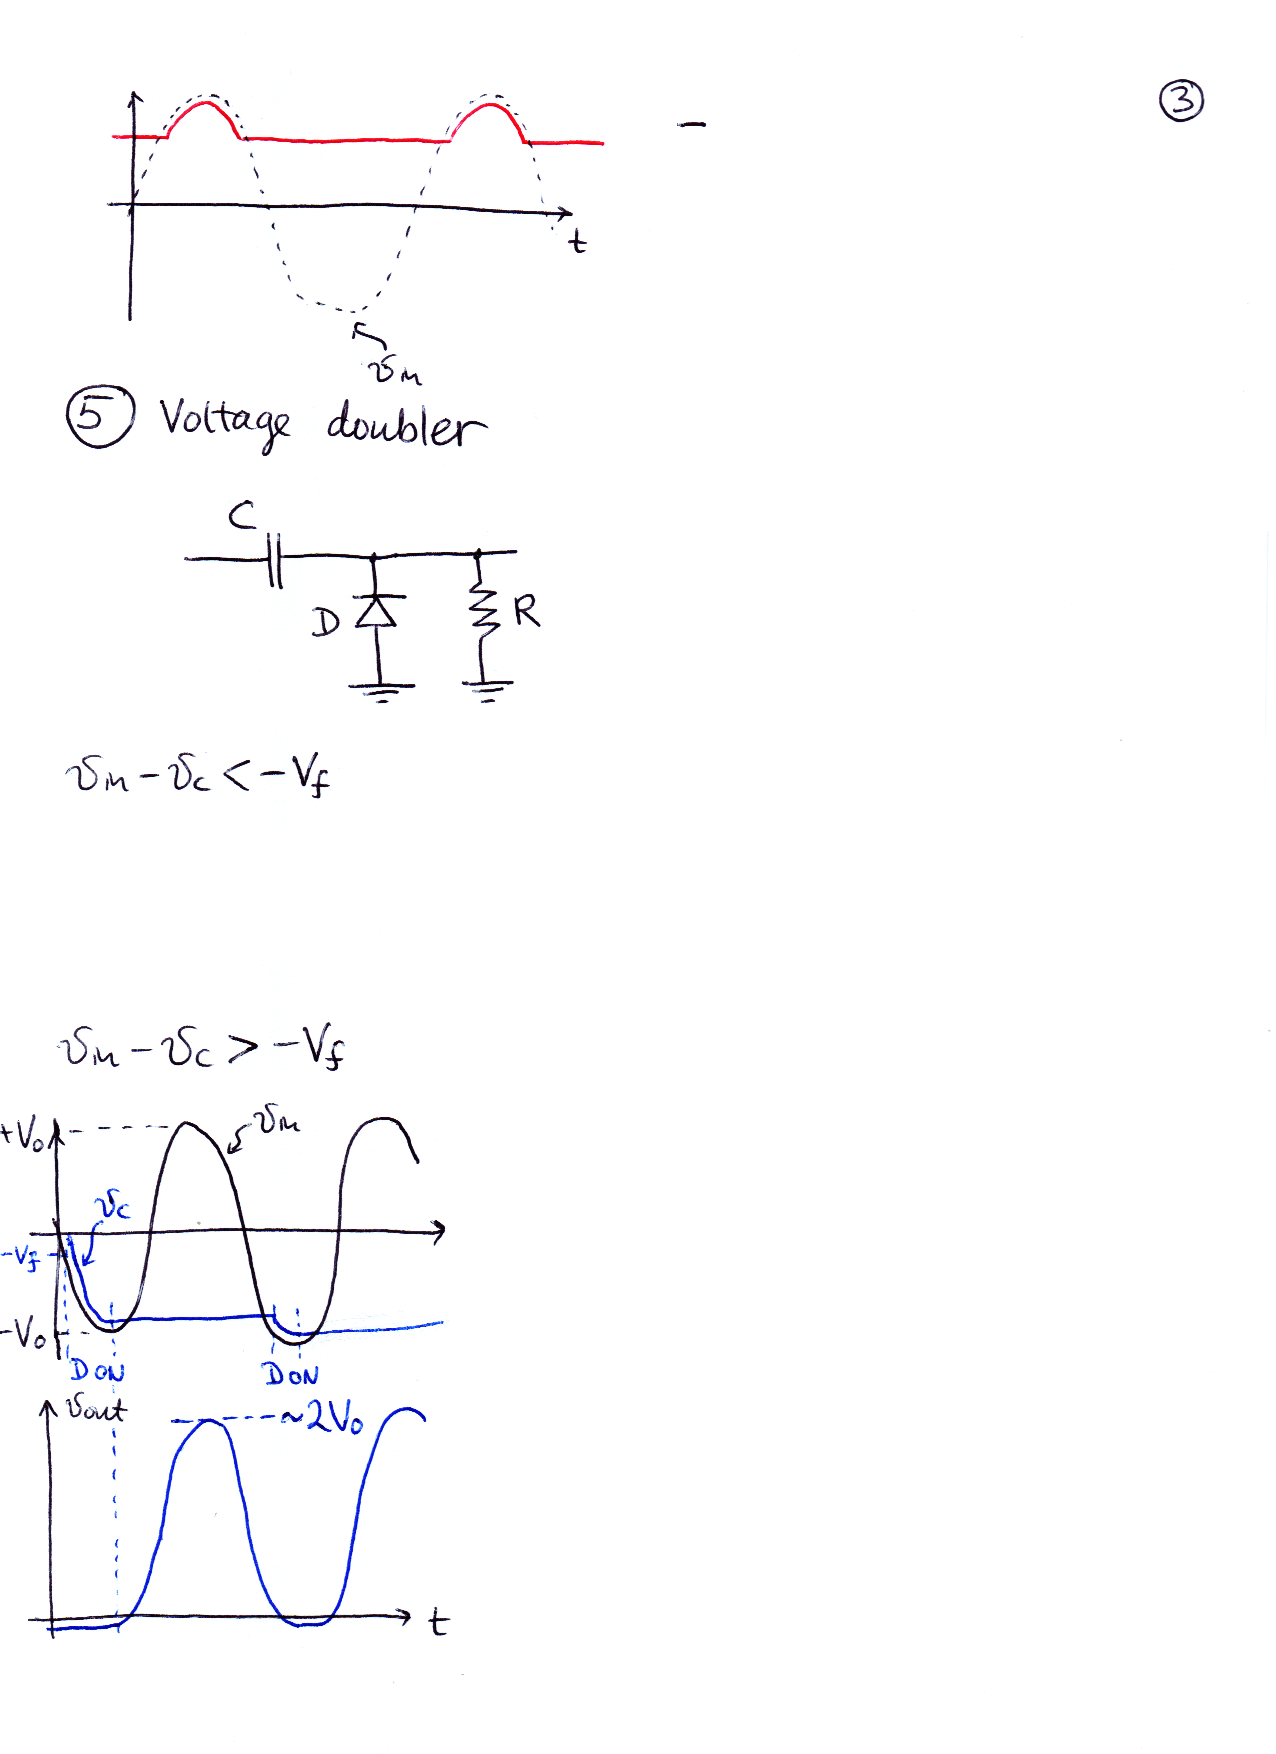 ③
t
vin
⑤ Voltage doubler
C
D
R
vin - vc < -Vf
vin - vc > -Vf
+Vo
vin
vc
-Vf
-Vo
D ON
D ON
vout
~2Vo
t